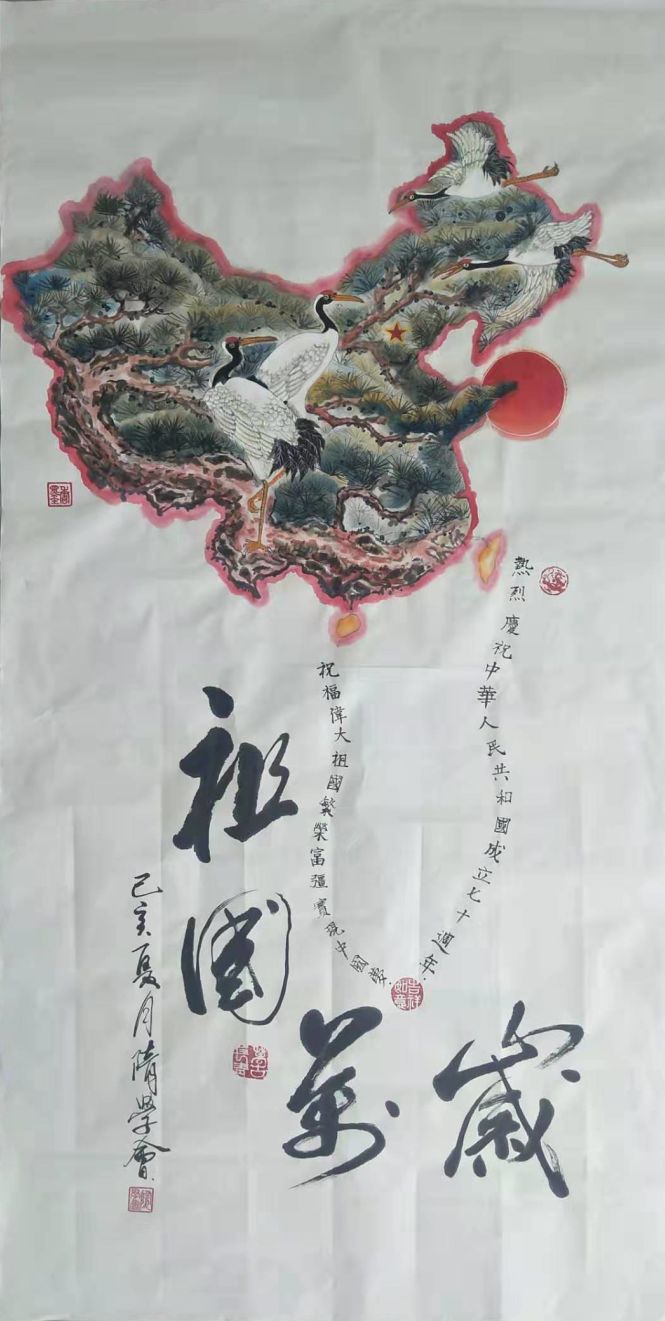 熱烈慶祝中華人民共和國成立七十週年
祝福偉大祖國繁榮富强實現中國夢
祖國
萬歲
己亥夏月隋學會
吉祥如意